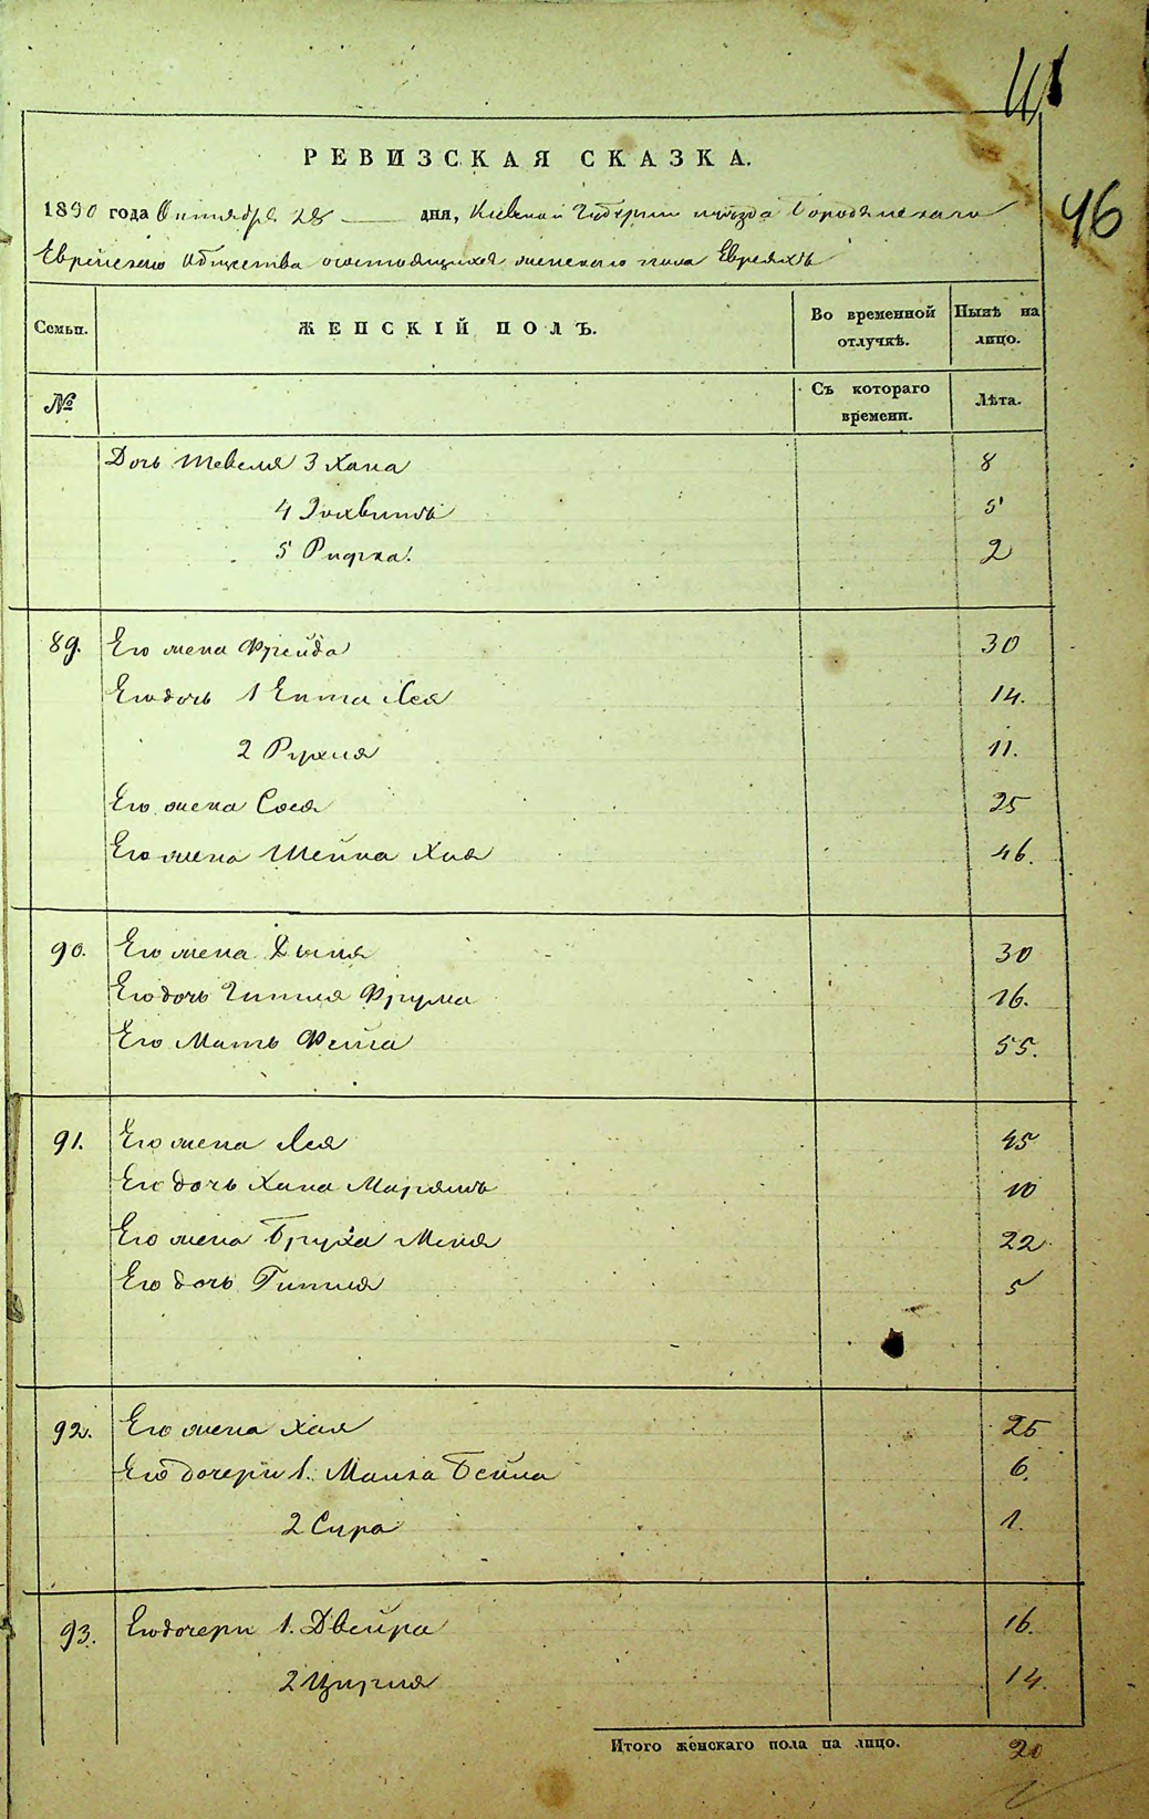 46
РЕВИЗСКАЯ СКАЗКА.
1850 года Октября 28 дня, Киевской Губернии уѣзда Бородянскаго
Еврейскаго Общества о состоящихся женскаго пола Евреяхъ
Семьи. ЖЕНСКІЙ ПОЛЪ. Во временной отлучкѣ. Нынѣ на лицо.
№ Съ котораго времени. Лѣта.
Дочь Тевеля 3 Хана 8
4 5
5 Рифка. 2
89. Его жена Фрейда 30
Его дочь 1 Ента Лея 14.
2 Рухля 11.
Его жена Сося 25
Его жена Шейна Хая 46.
90. Его жена 30
Его дочь Гитля Фрума 16.
Его Мать Фейга 55.
91. Его жена Лея 45
Его дочь Хана Марьямъ 10
Его жена Бруха Меня 22
Его дочь Гитля 5
92. Его жена Хая 25
Его дочери 1. Малка Бейла 6.
2 Сура 1.
93. Его дочери 1. Двейра 16.
2 Цирля 14.
Итого женскаго пола на лицо. 20